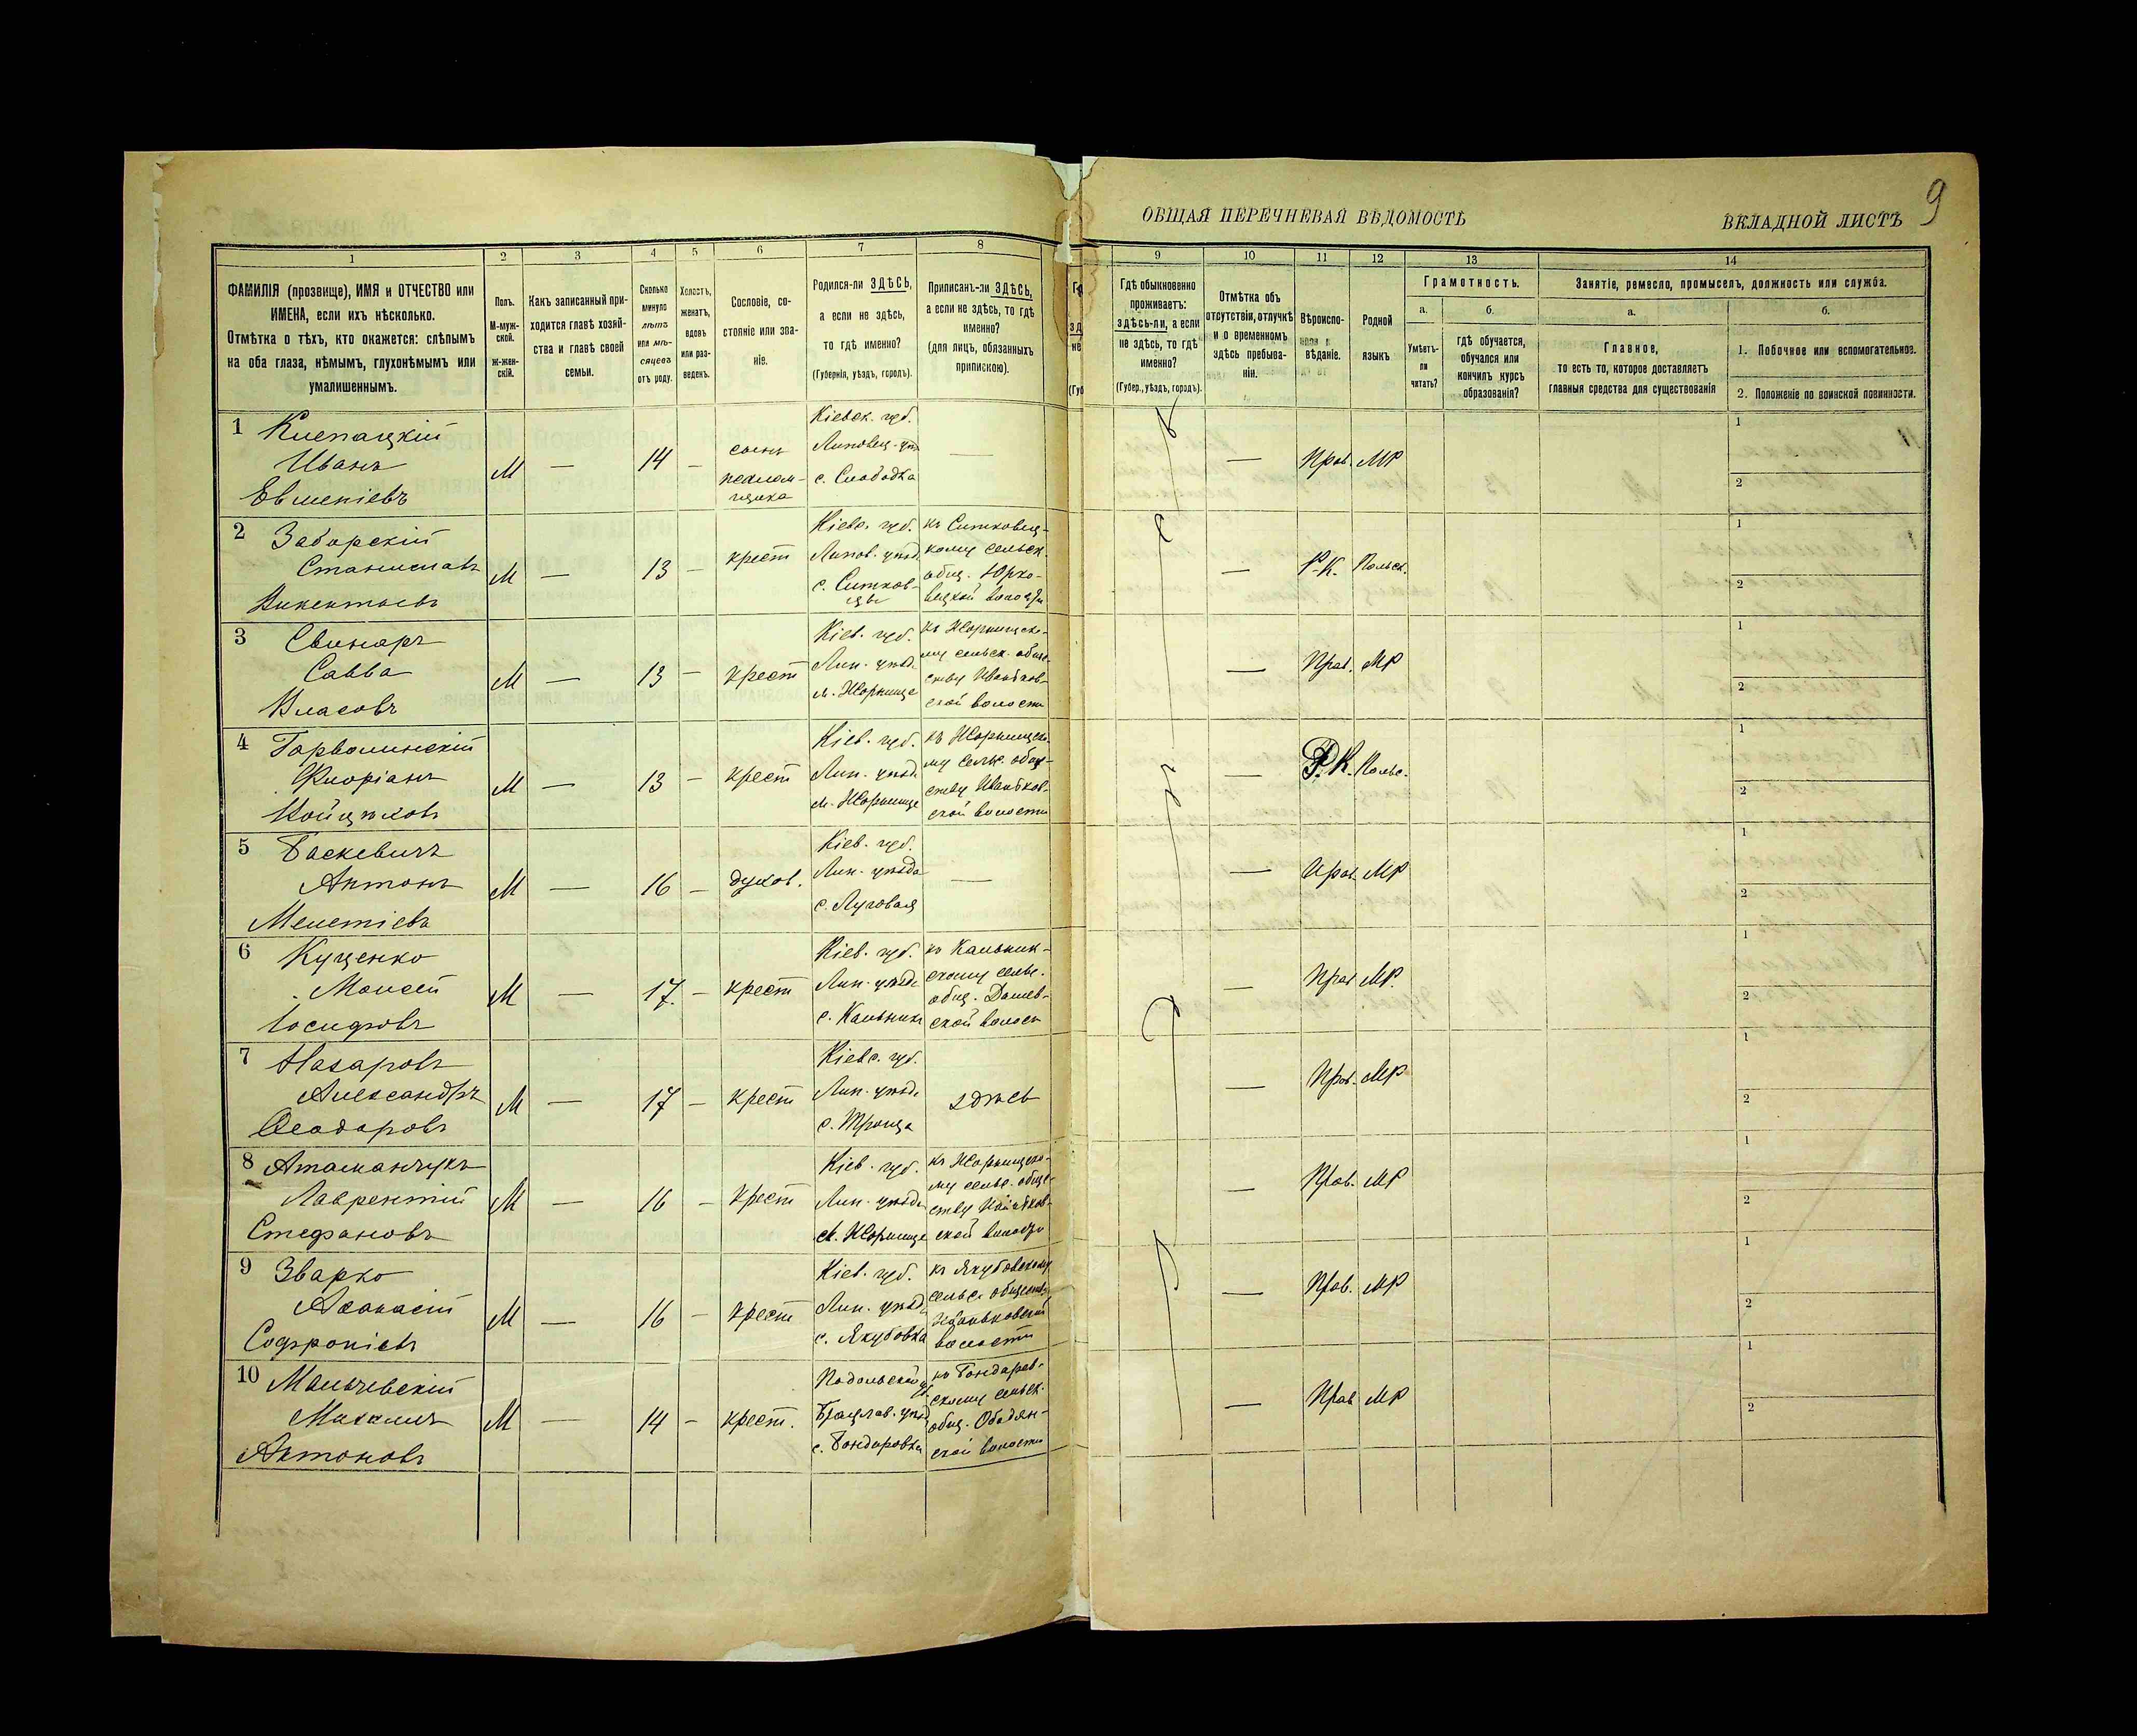 9
ОБЩАЯ ПЕРЕЧНЕВАЯ ВѢДОМОСТЬ
ВКЛАДНОЙ ЛИСТЪ
1
ФАМИЛІЯ (прозвище), ИМЯ и ОТЧЕСТВО или
ИМЕНА, если ихъ нѣсколько.
Отмѣтка о тѣхъ, кто окажется: слѣпымъ
на оба глаза, нѣмымъ, глухонѣмымъ или
умалишеннымъ.
2
Полъ.
М-муж-
ской.
Ж-жен-
скій.
3
Какъ записанный при-
ходится главѣ хозяй-
ства и главѣ своей
семьи.
4
Сколько
минуло
лѣтъ
или мѣ-
сяцевъ
отъ роду.
5
Холостъ,
женатъ,
вдовъ
или раз-
веденъ.
6
Сословіе, со-
стояніе или зва-
ніе.
7
Родился-ли ЗДѢСЬ,
а если не здѣсь,
то гдѣ именно?
(Губернія, уѣздъ, городъ).
8
Приписанъ-ли ЗДѢСЬ,
а если не здѣсь, то гдѣ
именно?
(для лицъ, обязанныхъ
припискою).
9
Гдѣ обыкновенно
проживаетъ:
здѣсь-ли, а если
не здѣсь, то гдѣ
именно?
(Губер., уѣздъ, городъ).
10
Отмѣтка объ
отсутствіи, отлучкѣ
и о временномъ
здѣсь пребыва-
ніи.
11
Вѣроиспо-
вѣданіе.
12
Родной
языкъ
13
Грамотность.
а.
Умѣетъ-
ли
читать?
б.
гдѣ обучается,
обучался или
кончилъ курсъ
образованія?
14
Занятіе, ремесло, промыселъ, должность или служба.
а.
Главное,
то есть то, которое доставляетъ
главныя средства для существованія
б.
1. Побочное или вспомогательное.
2. Положеніе по воинской повинности.
1 Клепацкій
Иванъ
Евменіевъ
М — 14 —
сынъ
псалом-
щика
Кіевск. губ.
Липовец. уѣз.
с. Слободка
—
— Прав. МР
1
2
2 Заборскій
Станиславъ
Викентьевъ
М — 13 — крест
Кіевс. губ.
Липов. уѣзд.
с. Ситков-
цы
къ Ситковец-
кому сельск.
общ. Юрко-
вецкой
— Р-К. Польск.
1
2
3 Свинарь
Савва
Власовъ
М — 13 — крест
Кіев. губ.
Лип. уѣзд.
м. Жорнище
къ Жорнищско-
му сельск. обще-
ству Иваньков-
ской волости
— Прав. МР
1
2
4
Флоріанъ
Войцѣховъ
М — 13 — крест
Кіев. губ.
Лип. уѣзд.
м. Жорнище
къ Жорнищско-
му сельс. обще-
ству Иваньков-
ской волости
— Р.К. Польс.
1
2
5 Баскевичъ
Антонъ
Мелетіевъ
М — 16 — духов.
Кіев. губ.
Лип. уѣзда
с. Луговая
—
— Прав. МР
1
2
6 Куценко
Моисей
Іосифовъ
М — 17. — крест
Кіев. губ.
Лип. уѣзд.
с. Кальникъ
къ Кальник-
скому сельс.
общ. Дашев-
ской волост
— Прав МР.
1
2
7 Назаровъ
Александръ
Ѳеодоровъ
М — 17 — крест
Кіевс. губ.
Лип. уѣзд.
с. Троща
здѣсь
— Прав. МР
1
2
8 Атаманчукъ
Лаврентій
Стефановъ
М — 16 — крест
Кіев. губ.
Лип. уѣзда
м. Жорнище
къ Жорнищско-
му сельс. обще-
ству Иваньков-
ской волости
— Прав. МР
1
2
9 Зварко
Аѳанасій
Софроніевъ
М — 16 — крест
Кіев. губ.
Лип. уѣзда
с. Якубовка
къ Якубовскому
сельс. обществу
Иваньковской
волости
— Прав. МР
1
2
10 Мальчевскій
Михаилъ
Антоновъ
М — 14 — крест.
Подольской г.
Брацлав. уѣзд
с. Бондаровка
къ Бондарев-
скому сельск.
общ. Ободян-
ской волости
— Прав МР
1
2